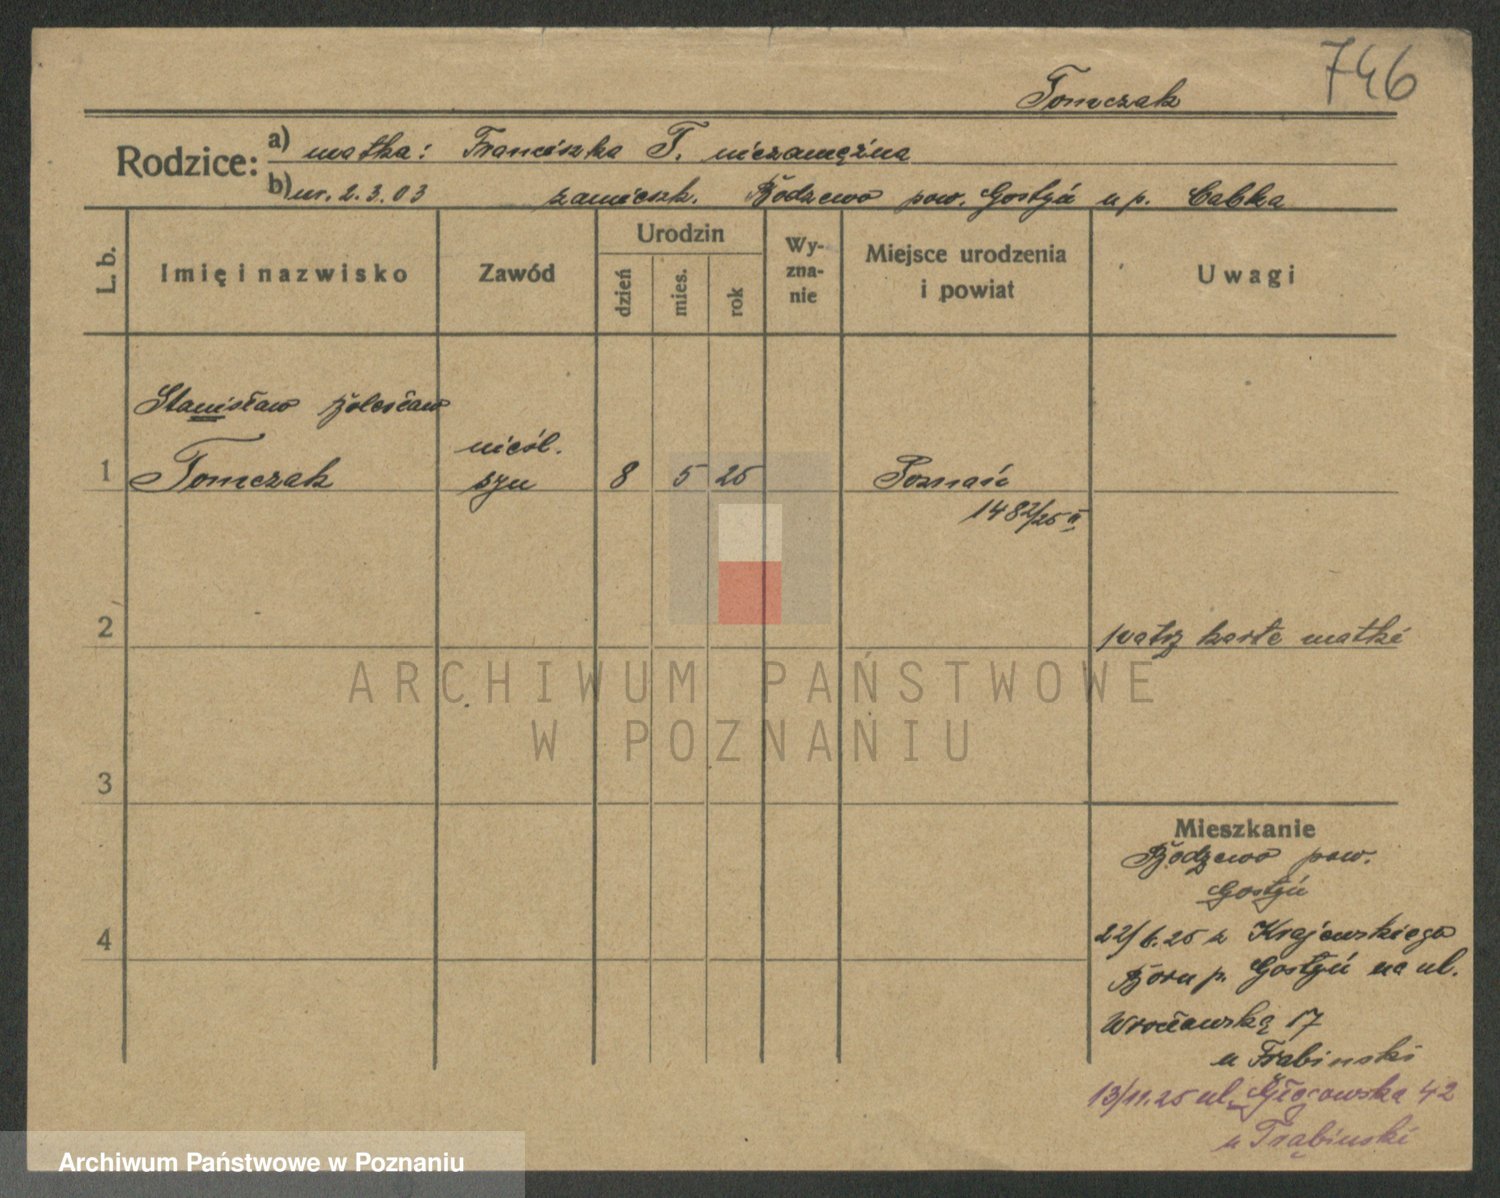 746
Tomczak
Rodzice: a) matka: Franciszka T. niezamężna
b) ur. 2.3.03 zamieszk. Bodzewo pow. Gostyń u p.
L. b.
Imię i nazwisko
Zawód
Urodzin
dzień
mies.
rok
Wy-
zna-
nie
Miejsce urodzenia
i powiat
Uwagi
Stanisław Bolesław
1 Tomczak nieśl. syn 8 5 25 Poznań
1482/25 II
2 patrz kartę matki
ARCHIWUM PAŃSTWOWE
W POZNANIU
3
Mieszkanie
Bodzewo pow.
Gostyń
4
22/6.25 z Krajewskiego
p. Gostyń na ul.
Wrocławską 17
u Trabinski
13/11.25 ul. 42
u Trąbinski
Archiwum Państwowe w Poznaniu